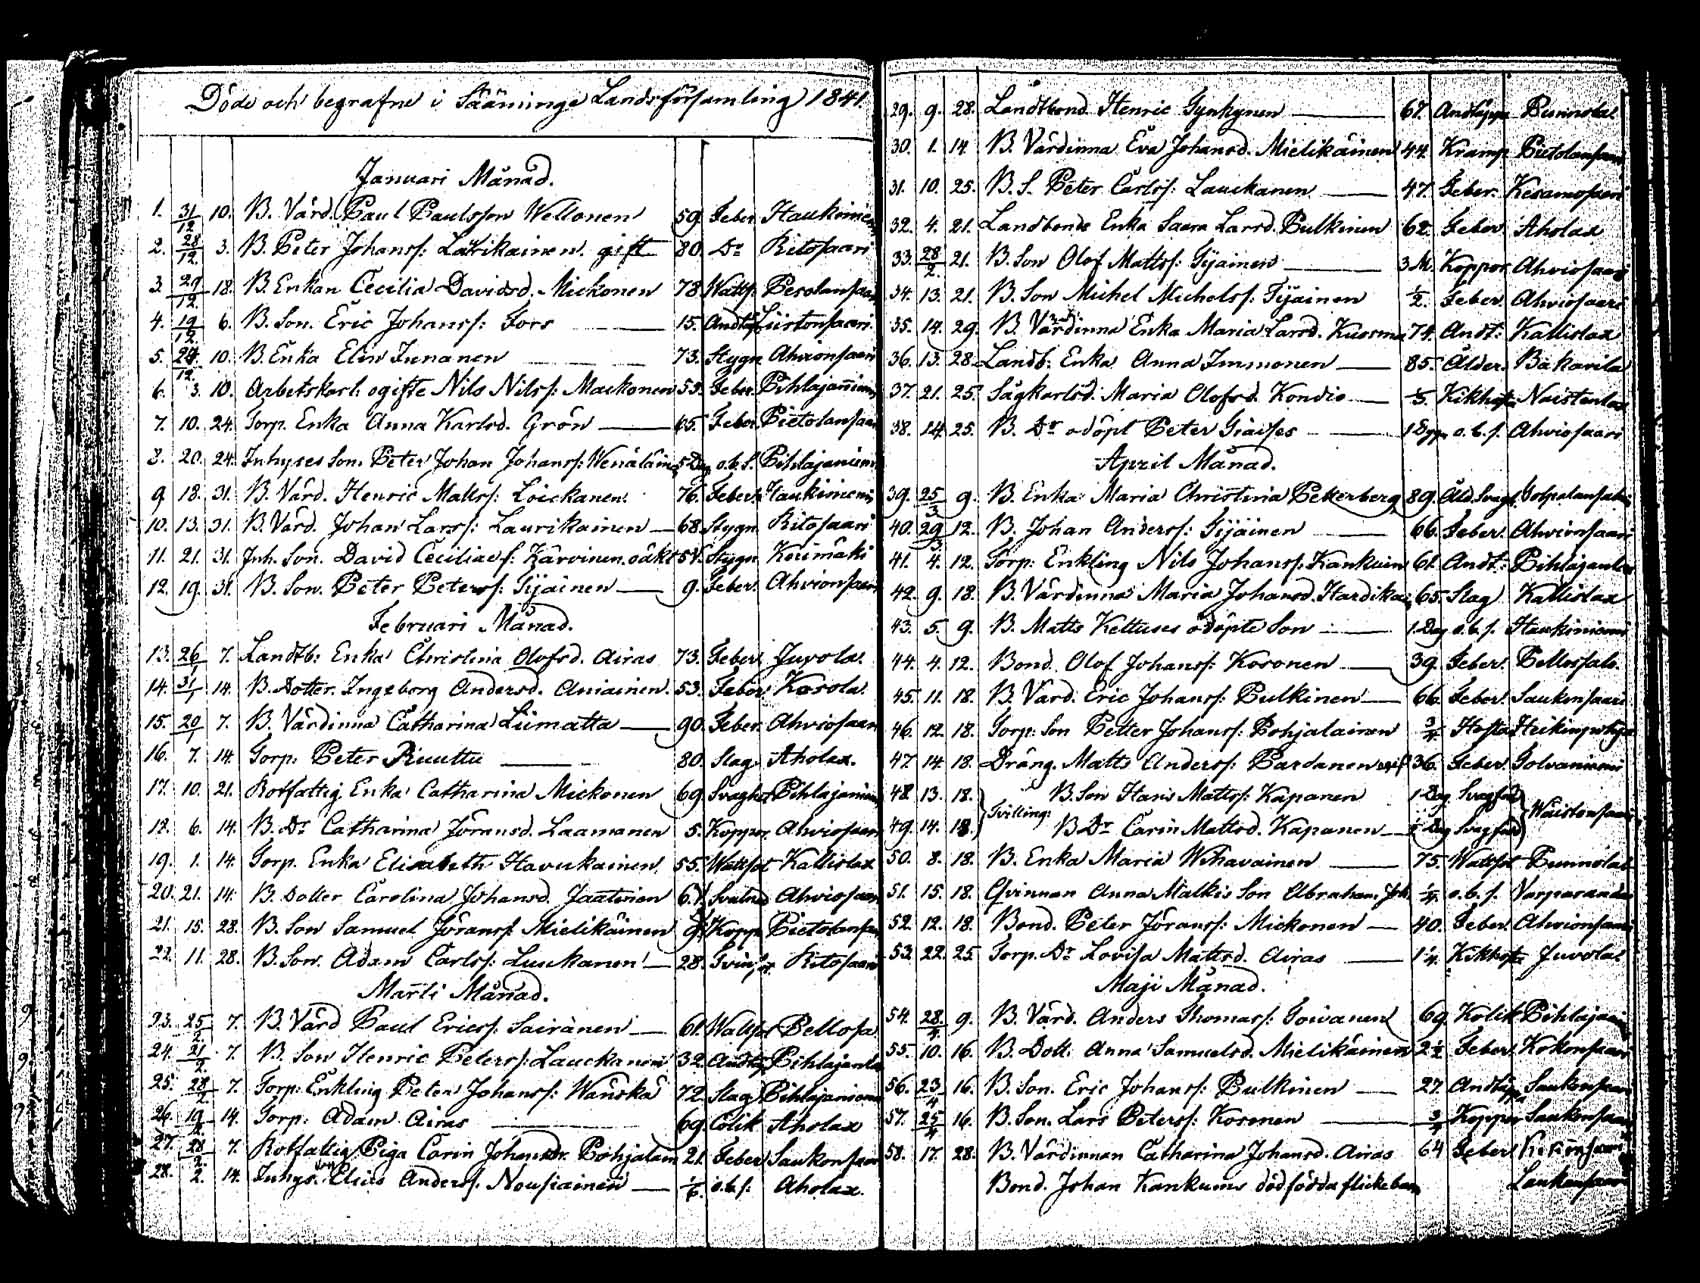 Döde och begrafne i Sääminge Landsförsamling 1841.
Januari Månad.
1. 31/12 10. B. Värd. Paul Paulsson Wellonen 59. Feber Haukiniemi
2. 28/12 3. B. Peter Johanss: Laurikainen. gift 80. Do Ritosaari
3 29/12 18. B. Enkan Cecilia Davidsd. Mickonen 78 Watts. Pesolansaari
4. 19/12 6. B. Son. Eric Johanss: Fors 15. Andtäp. Liistonsaari
5. 24/12. 10. B. Enka Elin Innanen 73. Stygn Ahvionsaari
6. 3. 10. Arbetskarl. ogifte Nils Nilss: Mackonen 53. Feber. Pihlajaniemi
7. 10. 24. Torp. Enka Anna Karlsd. Grön 65. Feber. Pietolansaari
8. 20. 24. Inhyses Son. Peter Johan Johanss: Wenäläinen 5 Dag. o.b.s. Pihlajaniemi
9. 18. 31. B. Värd. Henric Matts: Loickanen. 76. Feber. Haukiniemi
10. 13. 31. B. Värd. Johan Larss: Laurikainen 68 Stygn Ritosaari
11. 21. 31. Inh. Son. David Ceciliaes: Karvinen. oäkt Stygn Kerimäki
12. 19. 31. B. Son. Peter Peterss: Tijäinen 9. Feber. Ahvionsaari
Februari Månad.
13. 26/1 7. Landtb: Enka Christina Olofsd. Airas 73. Feber. Juvola.
14. 31/1 14. B. Dotter. Ingeborg Andersd. Aniainen. 53. Feber Kosola.
15. 20/1 7. B. Värdinna Catharina Liimatta 90. Feber. Ahviosaari
16. 7. 14. Torp. Peter Ruuttu 80. Slag. Aholax.
17. 10. 21. Rotfattig Enka Catharina Mickonen 69. Svaghet Pihlajaniemi
18. 6. 14. B. Dr Catharina Jöransd. Laamanen 5. Koppor. Ahviosaari
19. 1. 14. Torp. Enka Elisabeth Havukainen. 55. Wattsot Kallislax
20. 21. 14. B. Dotter Carolina Johansd. Jaatinen Ahviosaari
21. 15. 28. B. Son Samuel Jöranss: Mielikäinen Kopp. Pietolansaari
22. 11. 28. B. Son. Adam Carlss: Luukanen 28. Ritosaari
Marti Månad.
23. 25/2 7. B. Värd Paul Ericss: Sairanen 61. Wattsot Pellosa
24. 21/2 7. B. Son Henric Peterss: Lauckanen 32. Andtäp. Pihlajanla
25. 28/2 7. Torp. Enkling Peter Johanss: Wänskä 72. Slag Pihlajaniemi
26. 19/2 14. Torp. Adam Airas 69. Colik Aholax
27. 28/2 7. Rotfattig Piga Carin Johansdr. Pohjalain 21. Feber Saukonsaari
28. 2. 14. Inhys. Son Elias Anderss. Nousiainen 1/6. o.b.s: Aholax.
29. 9. 28. Landtbond. Henric Tynkynen 67. Andtäppa Punnola
30. 1. 14. B. Värdinna Eva Johansd. Mielikäinen 44. Kramp Pietolansaari
31. 10. 25. B. S. Peter Carlss: Lauckanen 47. Feber. Kesamosaari
32. 4. 21. Landbonde Enka Saara Larsd. Pulkinen 62. Feber. Aholax
33. 28/2 21. B. Son Olof Mattss: Tijäinen 3 M. Koppor. Ahviosaari
34. 13. 21. B. Son Michel Michelss: Tijäinen 1/2. Feber. Ahviosaari
35. 14. 29. B. Värdinna Enka Maria Larsd. Kuosma 74. Andt: Kallislax
36. 13. 28. Landb. Enka Anna Immonen 85. Ålder. Pakarila
37. 21. 25. Sågkarlsd. Maria Olofsd. Kondie Kikhosta Naistenlax
38. 14. 25. B. Dr odöpt Peter 1 Dygn o.b.s. Ahviosaari
April Månad.
39. 25/3 9. B. Enka Maria Christina Pekerberg 89. Åld. Svagh.
40. 29/3 12. B. Johan Anderss: Tijäinen 66. Feber. Ahvionsaari
41. 4. 12. Torp. Enkling Nils Johanss: Kankuin 61. Andt: Pihlajanlax
42. 9. 18. B. Värdinna Maria Johansd. Hardikai 65. Slag Kallislax
43. 5. 9. B. Matts Kettuses odöpte Son 1. Dag o.b.s. Haukiniemi
44. 4. 12. Bond. Olof Johanss: Kosonen 39. Feber. Pellosalo.
45. 11. 18. B. Värd. Eric Johanss: Pulkinen 66. Feber. Saukonsaari
46. 12. 18. Torp. Son Petter Johanss: Pohjalainen 3/4. Hosta Heikinpohja
47. 14. 18. Dräng. Matts Anderss: Pardanen 36. Feber. Tolvaniemi
48. 13. 18. Tvilling: B. Son Hans Mattss: Kapanen 1 Dag Svaghet
49. 14. 18. B. Dr Carin Mattsd. Kapanen Dag Svaghet Wäistonsaari
50. 8. 18. B. Enka Maria Wihavainen 75. Wattsot Punnola
51. 15. 18. Qvinnan Anna Malkis Son Abraham Joh. 1/4. o.b.s. Varparanda
52. 12. 18. Bond. Peter Jöranss: Mickonen 40. Feber. Ahvionsaari
53. 22. 25. Torp. Dr Lovisa Mattsd. Airas 1 1/4. Kikhosta Juvola
Maji Månad.
54. 28/4 9. B. Värd. Anders Thomass: Toivanen 69. Kolik Pihlajani
55. 10. 16. B. Dott. Anna Samuelsd. Mielikäinen 2 1/2 Feber. Kokonsaari
56. 23/4 16. B. Son. Eric Johanss: Pulkinen 27. Andtäppa Saukonsaari
57. 25/4 16. B. Son. Lars Peterss: Kosonen 3/4 Koppor Saukonsaari
58. 17. 28. B. Värdinnan Catharina Johansd. Airas 64 Feber
Bond. Johan Kankuns dödfödda flickebarn Saukonsaari